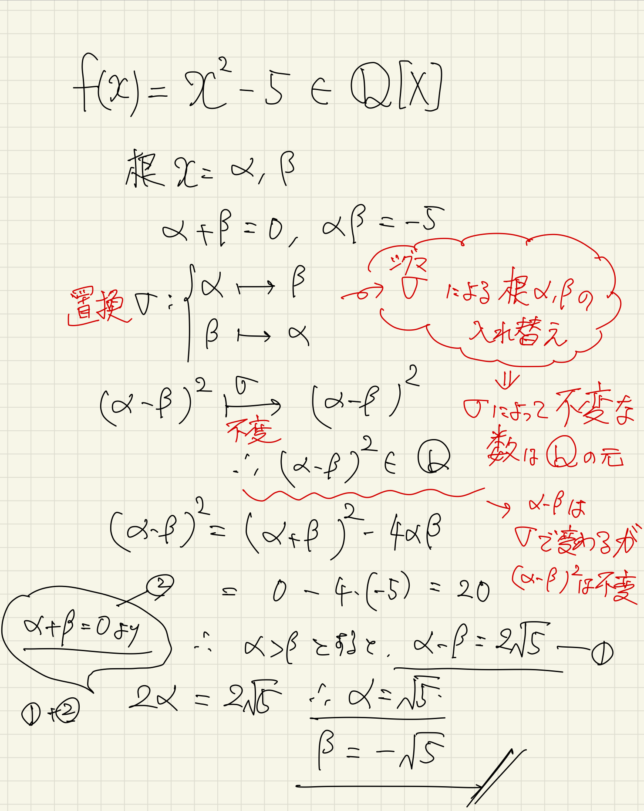 f(x) = x² - 5 ∈ Q[X]
根 x = α, β
α + β = 0, αβ = -5
置換 σ : { α ↦ β
β ↦ α
シグマ
σ による根α,βの
入れ替え
(α-β)² ↦ (α-β)²
σ
不変
⇓
σによって不変な
数はQの元
∴ (α-β)² ∈ Q
→ α-βは
σで変わるが
(α-β)²は不変
(α-β)² = (α+β)² - 4αβ
= 0 - 4·(-5) = 20
②
α+β=0より
∴ α>βとすると, α-β = 2√5 —①
①+② 2α = 2√5 ∴ α = √5.
β = -√5